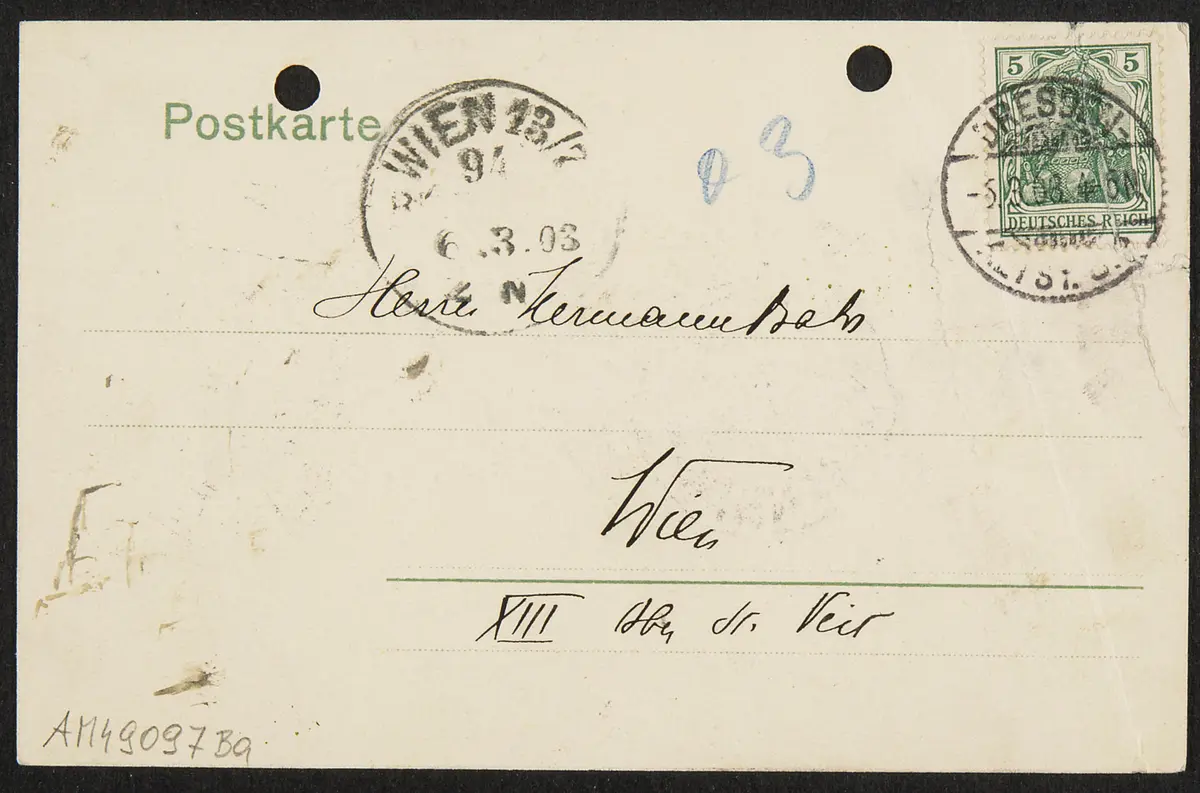 Postkarte
WIEN 13/7
94
6.3.03
N
03
5 5
DRESDEN-
-5.3.03. 4-5N
DEUTSCHES REICH
ALTST.
Herrn Hermann Bahr
Wien
XIII Ober St. Veit
AM49097Ba